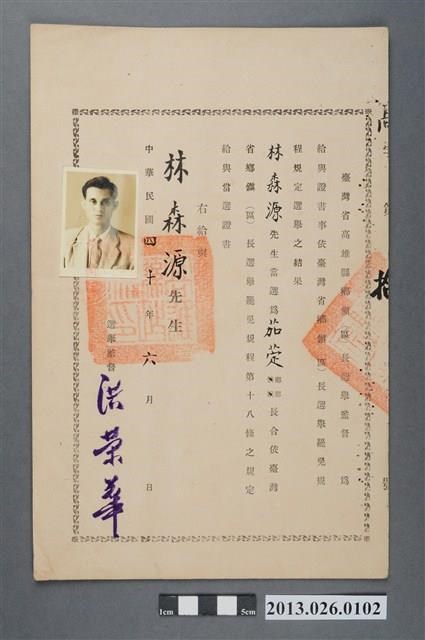 臺灣省高雄縣鄉鎮(區)長選舉監督 為
給與證書事依臺灣省鄉鎮(區)長選舉罷免規
程規定選舉之結果
林森源先生當選為茄萣鄉長合依臺灣
省鄉鎮(區)長選舉罷免規程第十八條之規定
給與當選證書
右給與
林森源先生
中華民國四十年六月 日
選舉監督
洪榮華
1cm
5cm
2013.026.0102